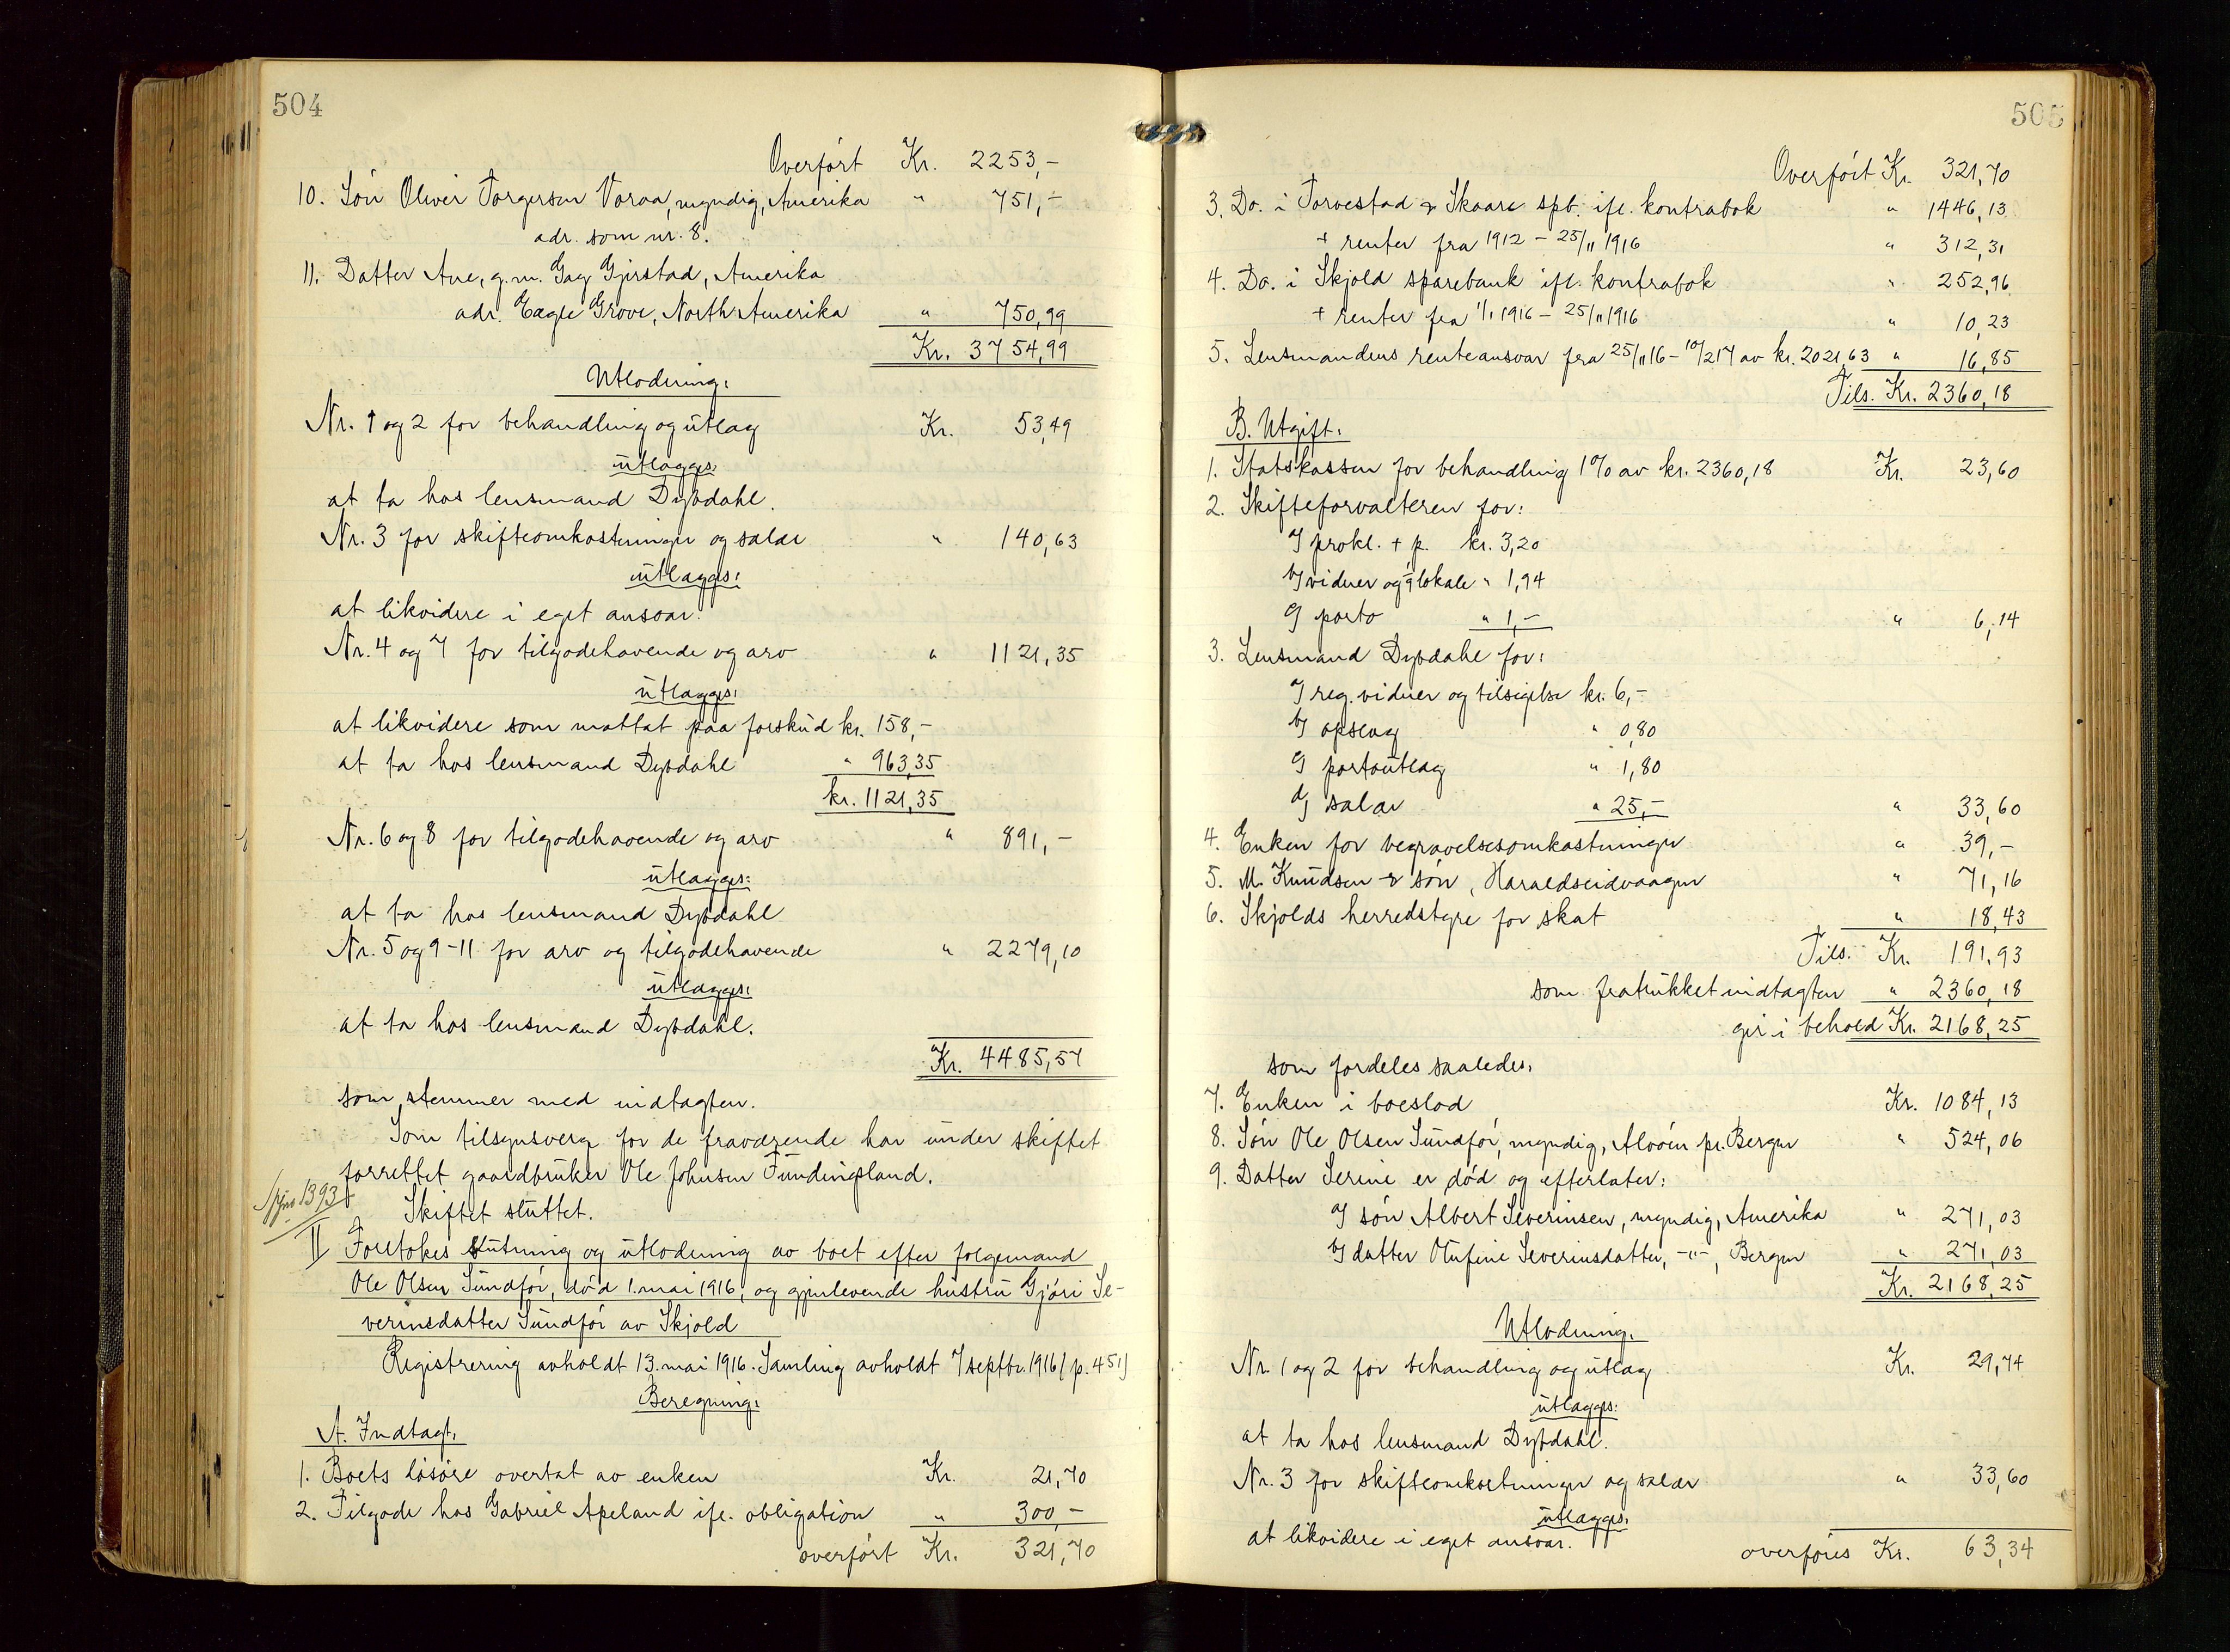 504
Overført Kr. 2253,-
10. Søn Oliver Torgersen Voraa, myndig, Amerika " 751,-
adr. som nr. 8.
11. Datter Ane, g.m. Gay Gjerstad, Amerika
adr. Eagle Grove, North Amerika " 750,99
Kr. 3754,99
Utlodning:
Nr. 1 og 2 for behandling og utlæg Kr. 53,49
utlægges:
at ta hos lensmand Dybdahl.
Nr. 3 for skifteomkostninger og salær " 140,63
utlægges:
at likvidere i eget ansvar.
Nr. 4 og 7 for tilgodehavende og arv " 1121,35
utlægges:
at likvidere som mottat paa forskud kr. 158,-
at ta hos lensmand Dybdahl " 963,35
kr. 1121,35
Nr. 6 og 8 for tilgodehavende og arv " 891,-
utlægges:
at ta hos lensmand Dybdahl
Nr. 5 og 9-11 for arv og tilgodehavende " 2279,10
utlægges:
at ta hos lensmand Dybdahl.
Kr. 4485,57
som stemmer med indtægten.
Som tilsynsverge for de fraværende har under skiftet
forrettet gaardbruker Ole Johnsen Fundingsland.
Skiftet sluttet.
II Foretokes slutning og utlodning av boet efter følgemand
Ole Olsen Sundfør, død 1. mai 1916, og gjenlevende hustru Gjøri Se-
verinsdatter Sundfør av Skjold
Registrering avholdt 13. mai 1916. Samling avholdt 7 septbr. 1916 (p. 451)
Beregning:
A. Indtægt:
1. Boets løsøre overtat av enken Kr. 21,70
2. Tilgode hos Gabriel Apeland ifl. obligation " 300,-
overført Kr. 321,70
505
Overført Kr. 321,70
3. Do. i Torvestad & Skaare spb. ifl. kontrabok " 1446,13
+ renter fra 1912 - 25/11 1916 " 312,31
4. Do. i Skjold sparebank ifl. kontrabok " 252,96
+ renter fra 1/1 1916 - 25/11 1916 " 10,23
5. Lensmandens renteansvar fra 25/11 16 - 10/2 17 av kr. 2021,63 " 16,85
Tils. Kr. 2360,18
B. Utgift:
1. Statskassen for behandling 1% av kr. 2360,18 Kr. 23,60
2. Skifteforvalteren for:
a) prokl. + p. kr. 3,20
b) vidner og lokale " 1,94
c) porto " 1,- " 6,14
3. Lensmand Dybdahl for:
a) reg. vidner og tilsigelse kr. 6,-
b) opslag " 0,80
c) portoutlæg " 1,80
d) salær " 25,- " 33,60
4. Enken for begravelsesomkostninger " 39,-
5. M. Knudsen & søn, Haraldseidvaagen " 71,16
6. Skjolds herredstyre for skat " 18,43
Tils. Kr. 191,93
som fratrukket indtægten " 2360,18
gir i behold Kr. 2168,25
som fordeles saaledes:
7. Enken i boeslod Kr. 1084,13
8. Søn Ole Olsen Sundfør, myndig, Alvøen pr. Bergen " 524,06
9. Datter Serine er død og efterlater:
a) søn Albert Severinsen, myndig, Amerika " 271,03
b) datter Olufine Severinsdatter, -"-, Bergen " 271,03
Kr. 2168,25
Utlodning:
Nr. 1 og 2 for behandling og utlæg Kr. 29,74
utlægges:
at ta hos lensmand Dybdahl.
Nr. 3 for skifteomkostninger og salær " 33,60
utlægges:
at likvidere i eget ansvar.
overføres Kr. 63,34